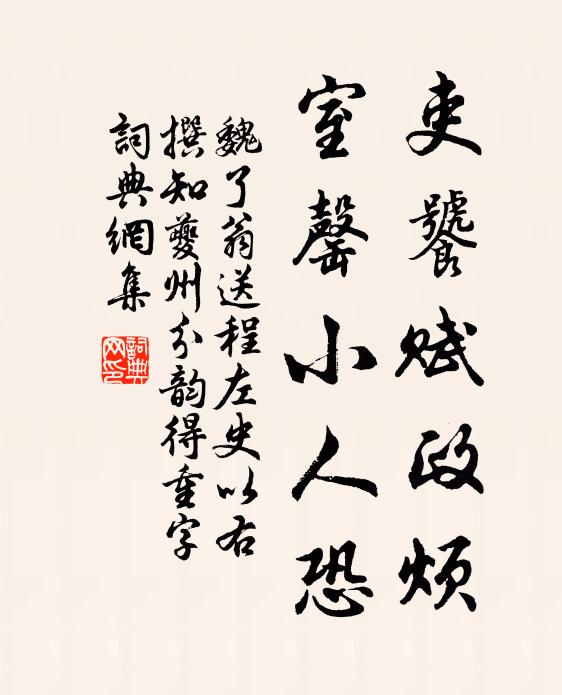 吏饕赋政烦
室罄小人恐
魏了翁送程左史以右
撰知夔州分韵得重字
詞典網集
詞典网印